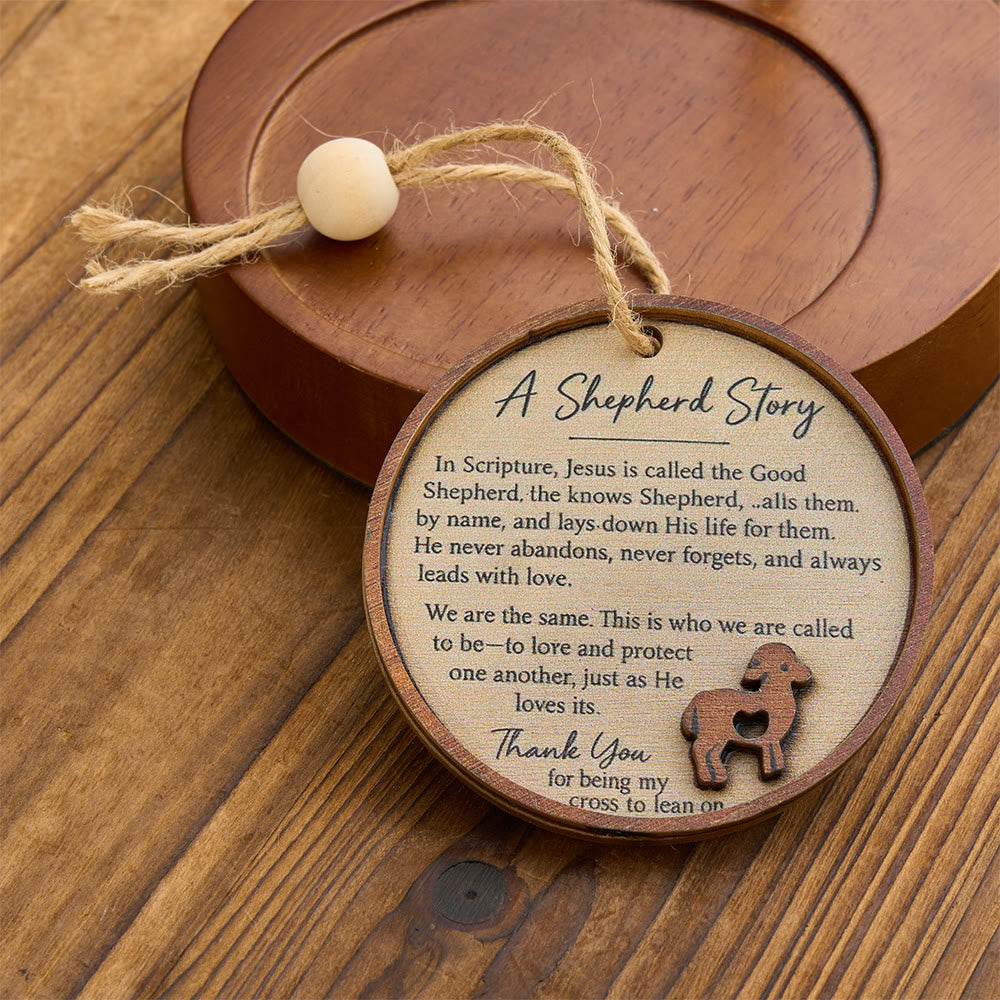 A Shepherd Story
In Scripture, Jesus is called the Good
Shepherd, the knows Shepherd, ..alls them.
by name, and lays down His life for them.
He never abandons, never forgets, and always
leads with love.
We are the same. This is who we are called
to be—to lore and protect
one another, just as He
loves its.
Thank You
for being my
cross to lean on